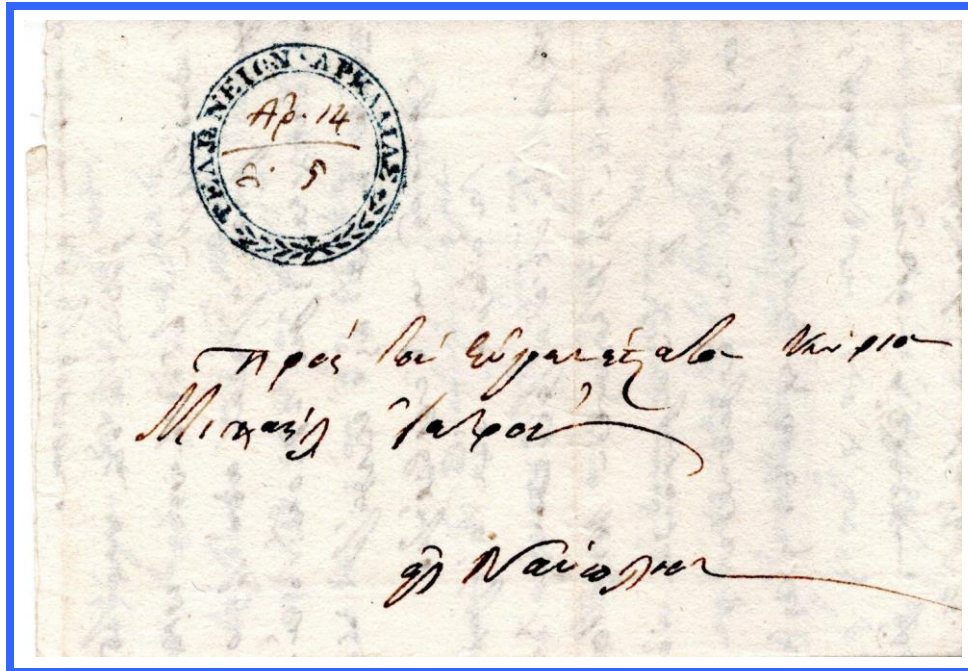 ΤΕΛΩΝΕΙΟΝ · ΑΡΚΑΔΙΑΣ
Αρ. 14
Πρὸς τὸν Εὐγενέστατον Κύριον
Μιχαὴλ Ἰατρὸν
Ναύπλιον